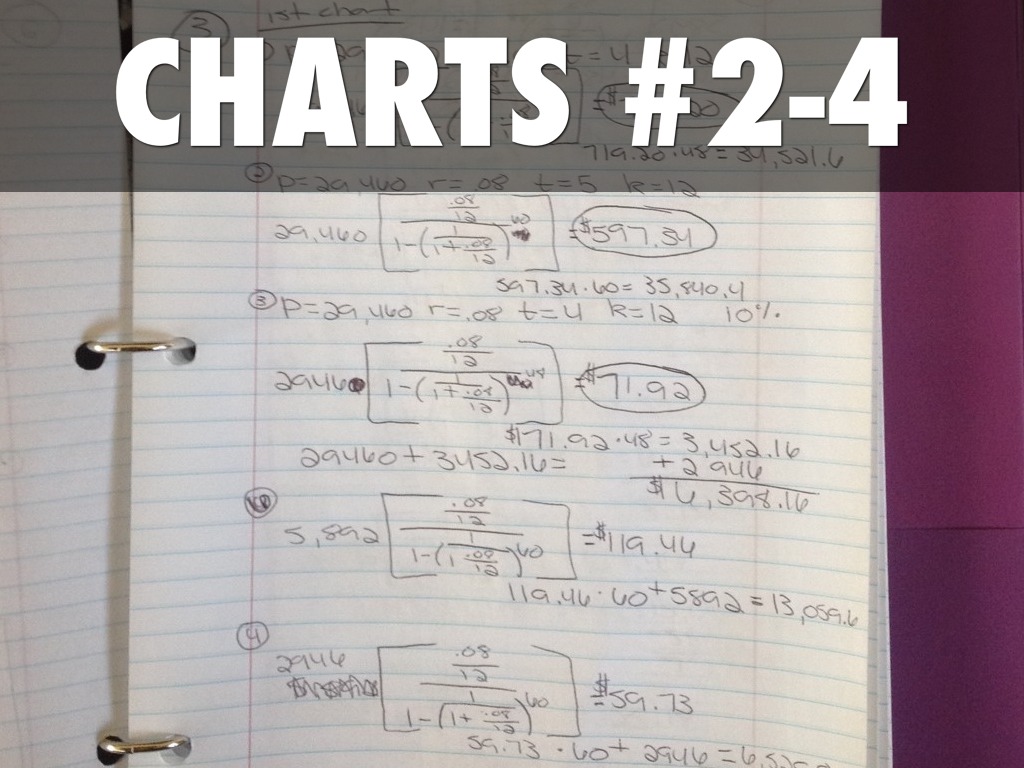 3 1st chart
CHARTS #2-4
719.20 · 48 = 34,521.6
② P=29,460 r=.08 t=5 k=12
29,460 [ .08/12 / 1-(1/1+.08/12)^60 ] = $597.34
597.34 · 60 = 35,840.4
③ P=29,460 r=.08 t=4 k=12 10%
2946 [ .08/12 / 1-(1/1+.08/12)^48 ] = $71.92
$171.92 · 48 = 3,452.16
29460 + 3452.16 = + 2946
$6,398.16
5,892 [ .08/12 / 1-(1/1 .08/12)^60 ] = $119.46
119.46 · 60 + 5892 = 13,059.6
④
2946 [ .08/12 / 1-(1/1+.08/12)^60 ] = $59.73
59.73 · 60 + 2946 =